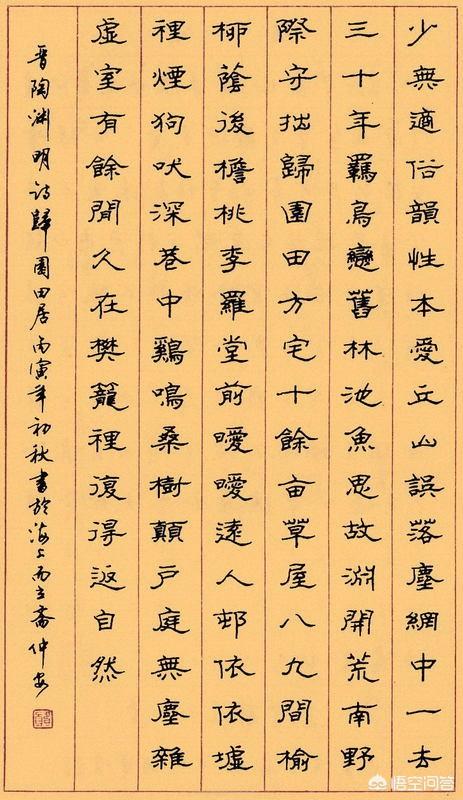 少無適俗韻性本愛丘山誤落塵網中一去
三十年羈鳥戀舊林池魚思故淵開荒南野
際守拙歸園田方宅十餘亩草屋八九間榆
柳蔭後檐桃李羅堂前曖曖遠人邨依依墟
裡煙狗吠深巷中鷄鳴桑樹顛戶庭無塵雜
虛室有餘閒久在樊籠裡復得返自然
晉陶淵明詩歸園田居丙寅年初秋書於海上而立齋仲安
悟空问答